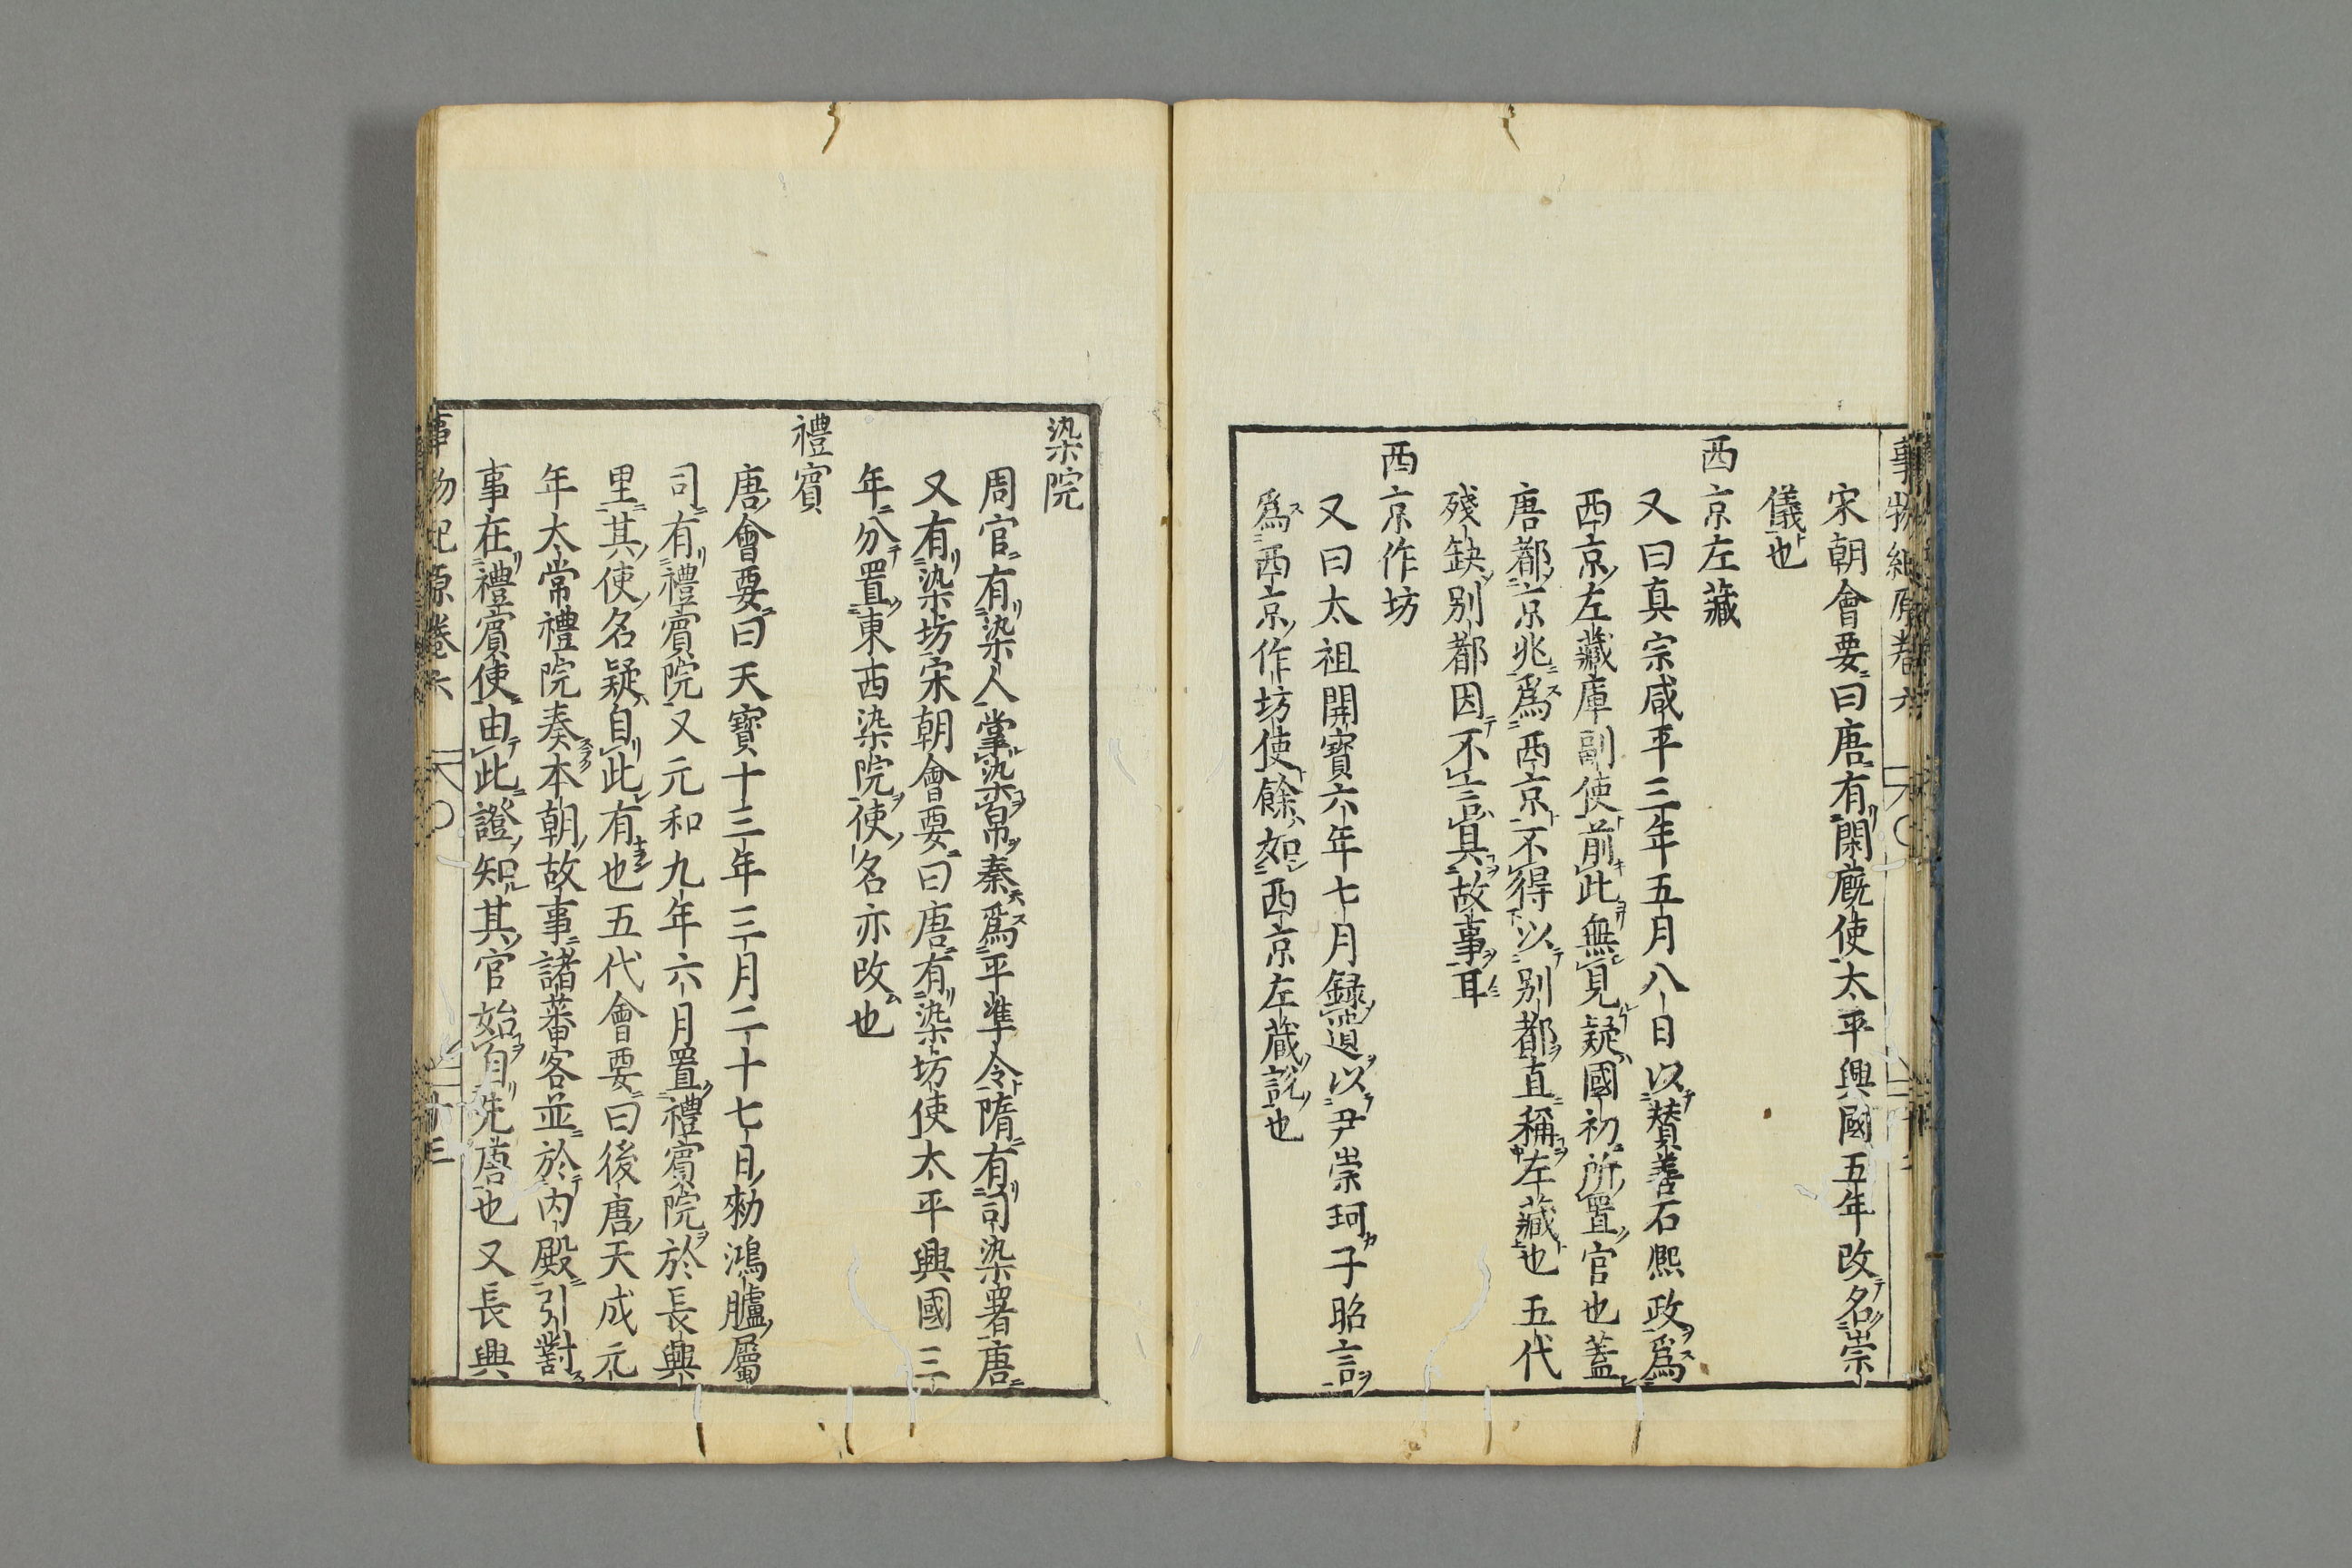 宋朝會要曰唐有閑廐使太平興國五年改名崇
儀也
西京左藏
又曰真宗咸平三年五月八日以賛善石熈政爲
西京左藏庫副使前此無見疑國初所置官也蓋
唐都京兆爲西京不得以别都直稱左藏也五代
殘缺别都因不言具故事耳
西京作坊
又曰太祖開寶六年七月録道以尹崇珂子昭言
爲西京作坊使餘如西京左蔵說也
染院
周官有染人掌染帛秦爲平準令隋有司染署唐
又有染坊宋朝會要曰唐有染坊使太平興國三
年分置東西染院使名亦改也
禮賓
唐會要曰天寶十三年三月二十七日勑鴻臚屬
司有禮賓院又元和九年六月置禮賓院於長興
里其使名疑自此有也五代會要曰後唐天成元
年太常禮院奏本朝故事諸蕃客並於内殿引對
事在禮賓使由此證知其官始自先唐也又長興
事物紀原卷六